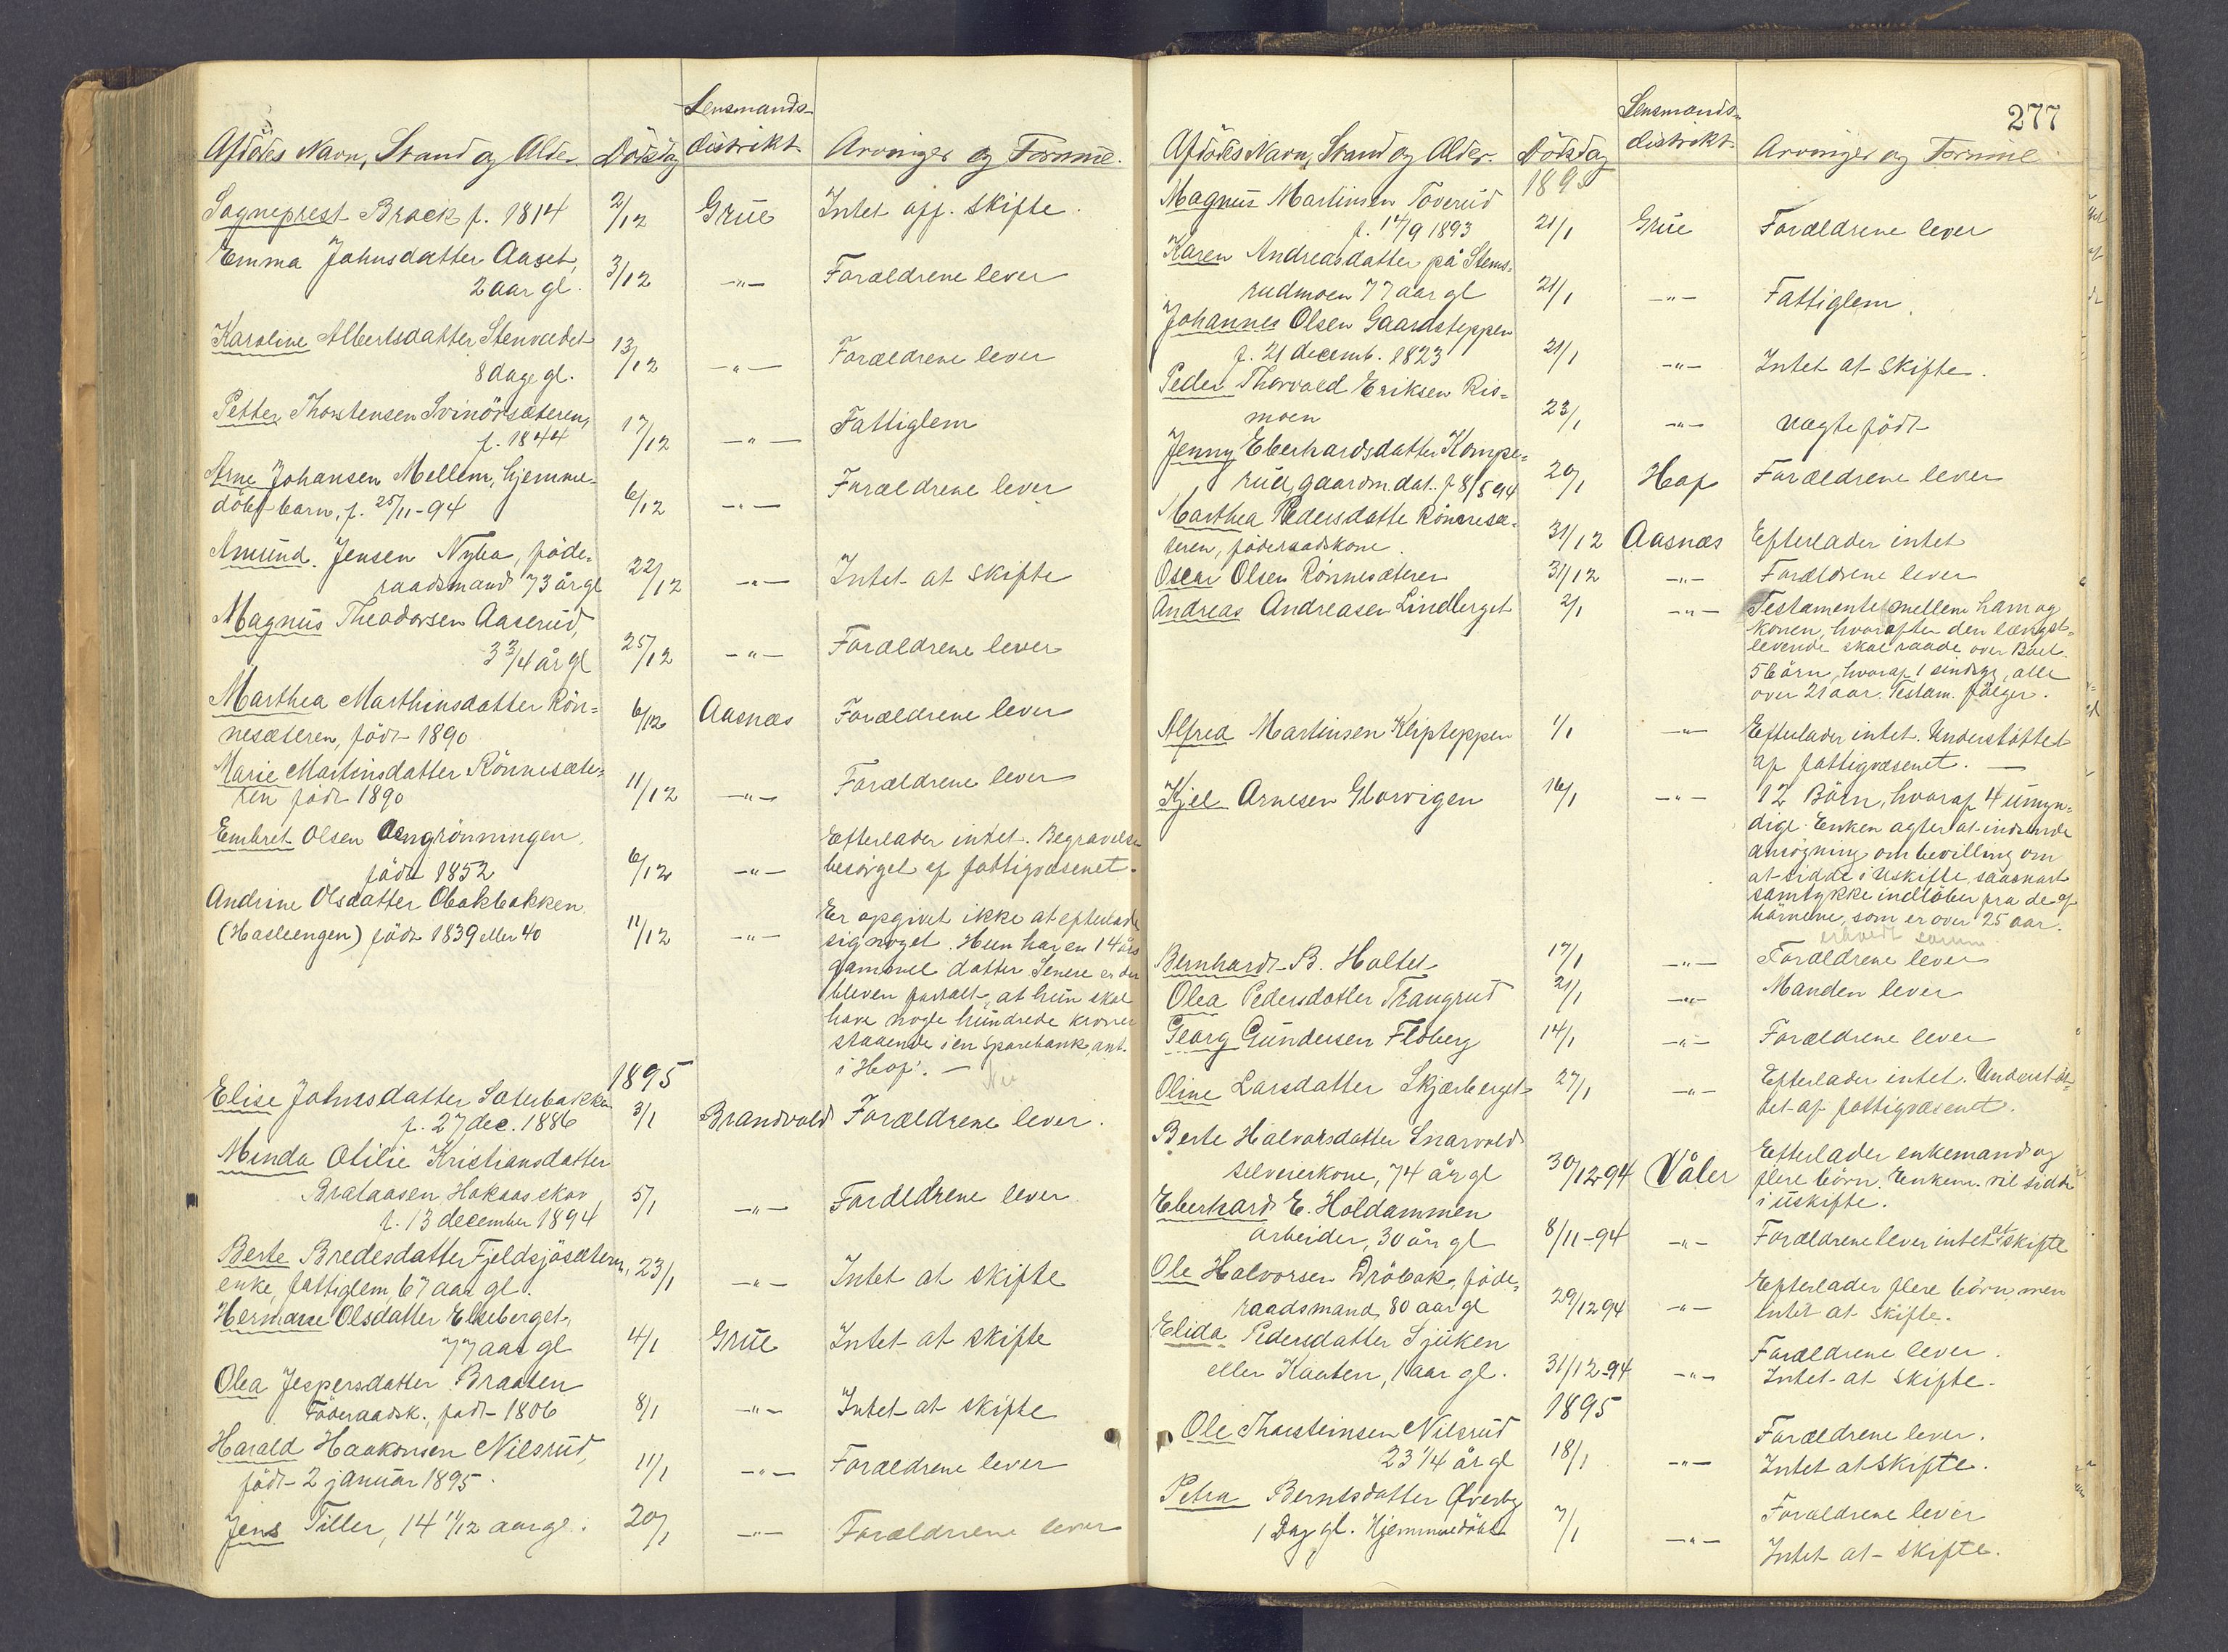 Lensmands-
Afdödes Navn, Stand og Alder. Dödsdag distrikt Arvinger og Formue.
Sogneprest Brock f. 1814 2/12 Grue Intet off. skifte.
Emma Johnsdatter Aaset,
2 aar gl. 3/12 -"- Forældrene lever
Karoline Albertsdatter Stenvadet
8 dage gl. 13/12 -"- Forældrene lever
Petter Thorstensen Svinörsæteren,
f. 1844 17/12 -"- Fattiglem
Arne Johansen Mellem, hjemme-
döbt barn, f. 25/11-94 6/12 -"- Forældrene lever
Amund Jensen Nyba, föde-
raadsmand 73 år gl 22/12 -"- Intet at skifte
Magnus Theodorsen Aaserud,
3 3/4 år gl 25/12 -"- Forældrene lever
Marthea Marthinsdatter Rön-
nesæteren, födt 1890 6/12 Aasnæs Forældrene lever
Marie Martinsdatter Rönnesæte-
ren födt 1890 11/12 -"- Forældrene lever
Embret Olsen grönningen, Efterlader intet. Begravelse
födt 1852 6/12 -"- besörget af fattigvæsenet.
Andrine Olsdatter Obakbakken Er opgivet ikke at efterlade
(Hasleengen) födt 1839 eller 40 11/12 -"- sig noget. Hun har en 14 års
gammel datter Senere er der
bleven fortalt, at hun skal
have nogle hundrede kroner
staaende i en sparebank, ant.
i Hof. -
1895
Elise Johnsdatter Sæterbakken
f. 27 dec. 1886 3/1 Brandvold Forældrene lever.
Minda Otilie Kristiansdatter
Brataasen, Hokaasskov
f. 13 december 1894 5/1 -"- Forældrene lever
Berte Bredesdatter Fjeldsjösæteren,
enke, fattiglem, 67 aar gl. 23/1 -"- Intet at skifte
Hermane Olsdatter Elseberget,
77 aar gl 4/1 Grue Intet at skifte
Olea Jespersdatter Braaten
Föderaadsk., födt 1806 8/1 -"- Intet at skifte
Harald Haakonsen Nilsrud,
födt 2 januar 1895. 11/1 -"- Forældrene lever
Jens Tiller, 14 11/12 aar gl. 20/1 -"- Forældrene lever
277
Lensmands-
Afdödes Navn, Stand og Alder. Dödsdag distrikt Arvinger og Formue
1895
Magnus Martinsen Toverud
f. 14/9 1893 21/1 Grue Forældrene lever
Karen Andreasdatter på Stems-
rudmoen 77 aar gl 21/1 -"- Fattiglem.
Johannes Olsen Gaardsteppen
f. 21 decemb. 1823 21/1 -"- Intet at skifte.
Peder Thorvald Eriksen Ris-
moen 23/1 -"- uægte födt
Jenny Eberhardsdatter Kompe-
rud, gaardm. dat. f 8/5 94 20/1 Hof Forældrene lever
Marthea Pedersdatter Rönnesæ-
teren, föderaadskone. 31/12 Aasnæs Efterlader intet
Oscar Olsen Rönnesæteren 31/12 -"- Forældrene lever
Andreas Andreasen Lindberget 2/1 -"- Testamente mellem ham og
konen, hvorefter den længst-
levende skal raade over Boet.
5 börn, hvoraf 1 sindsyg, alle
over 21 aar. Testam. fölger.
Alfred Martinsen Klipteppen 1/1 -"- Efterlader intet. Understöttet
af fattigvæsenet. -
Kjel Arnesen Glorvigen 16/1 -"- 12 Börn, hvoraf 4 umyn-
dige. Enken agter at indsende
ansögning om bevilling om
at sidde i uskifte, saasnart
samtykke indlöber fra de af
börnene, som er over 25 aar.
Bernhard B. Holtet 17/1 -"- Forældrene lever
Olea Pedersdatter Trangrud 21/1 -"- Manden lever
Georg Gundersen Floberg 14/1 -"- Forældrene lever
Oline Larsdatter Skjærberget 27/1 -"- Efterlader intet. Understöt-
tet af fattigvæsenet.
Berte Halvorsdatter Snarvold Efterlader enkemand og
selveierkone, 74 år gl 30/12 94 Våler flere börn. Enkem. vil sidde
i uskifte.
Eberhard E. Holdammen
arbeider, 30 år gl 8/11-94 -"- Forældrene lever intet at skifte
Ole Halvorsen Dröbak, föde- Efterlader flere börn men
raadsmand, 80 aar gl 29/12 94 -"- intet at skifte.
Elida Pedersdatter Sjuken Forældrene lever.
eller Kaaten, 1 aar gl. 31/12-94 -"- Intet at skifte.
1895
Ole Thorsteinsen Nilsrud Forældrene lever.
23 1/4 år gl 18/1 -"- Intet at skifte.
Petra Berntsdatter Øverby Forældrene lever
1 Dag gl. Hjemmedöbt 7/1 -"- Intet at skifte.